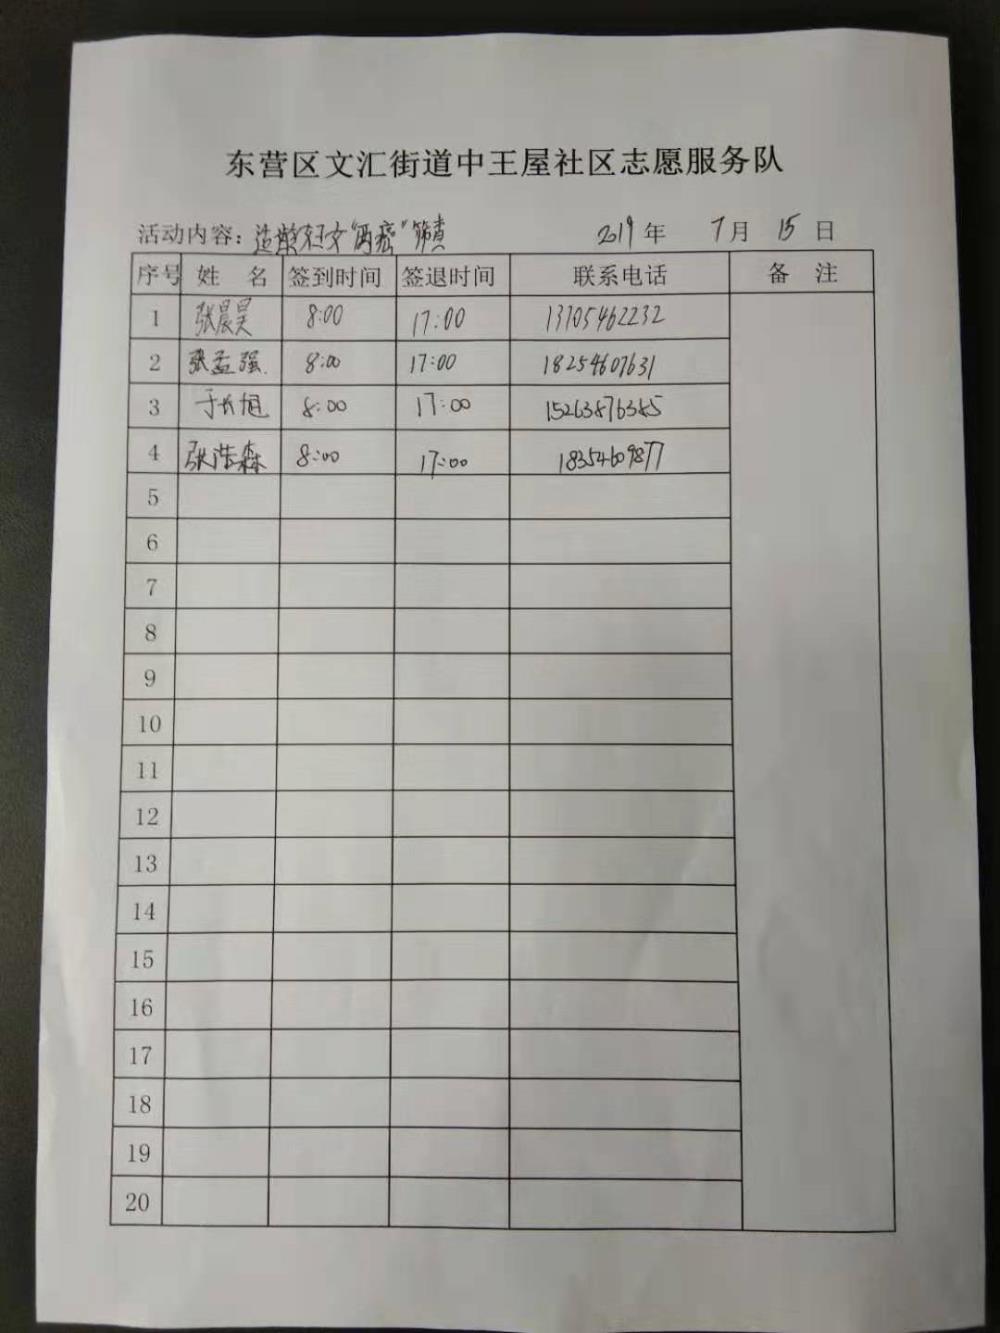 东营区文汇街道中王屋社区志愿服务队
活动内容: "两癌"筛查 2019 年 7 月 15 日
序号 姓 名 签到时间 签退时间 联系电话 备 注
1 张晨昊 8:00 17:00 13705462232
2 张孟强 8:00 17:00 18254607631
3 于长旭 8:00 17:00 15263876385
4 张浩森 8:00 17:00 18354609877
5
6
7
8
9
10
11
12
13
14
15
16
17
18
19
20